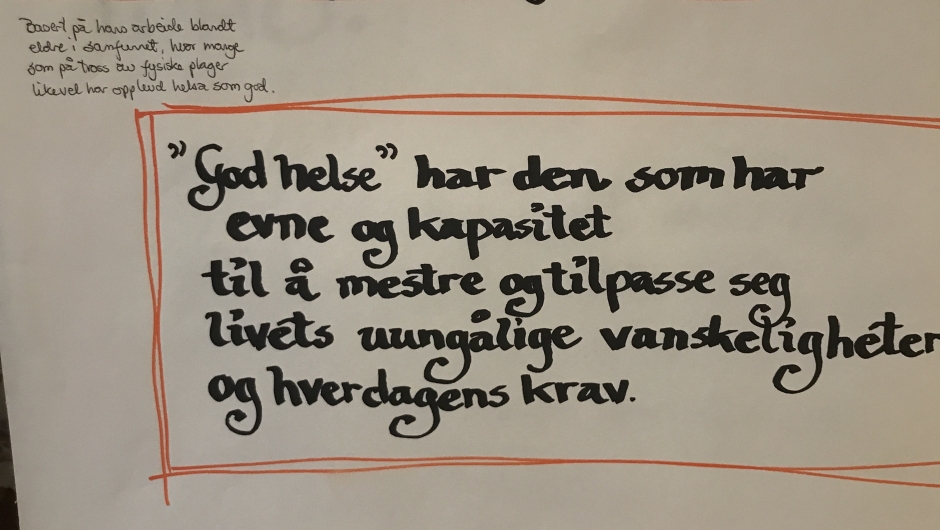 Basert på hans arbeide blandt
eldre i samfunnet, hvor mange
som på tross av fysiske plager
likevel har opplevd helsa som god.
"God helse" har den som har
evne og kapasitet
til å mestre og tilpasse seg
livets uungålige vanskeligheter
og hverdagens krav.